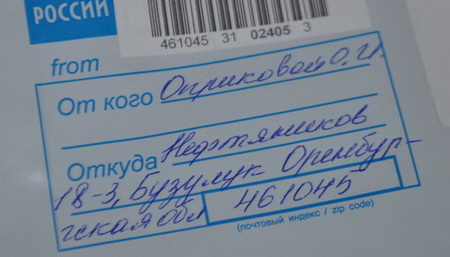 РОССИИ
461045 31 02405 3
from
От кого Оприковой О. И.
Откуда Нефтяников
18-3, Бузулук Оренбург-
гская обл
461045
(почтовый индекс / zip code)